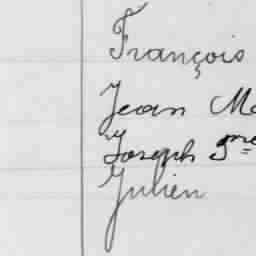 François
Jean Ma
Joseph 3me
Julien